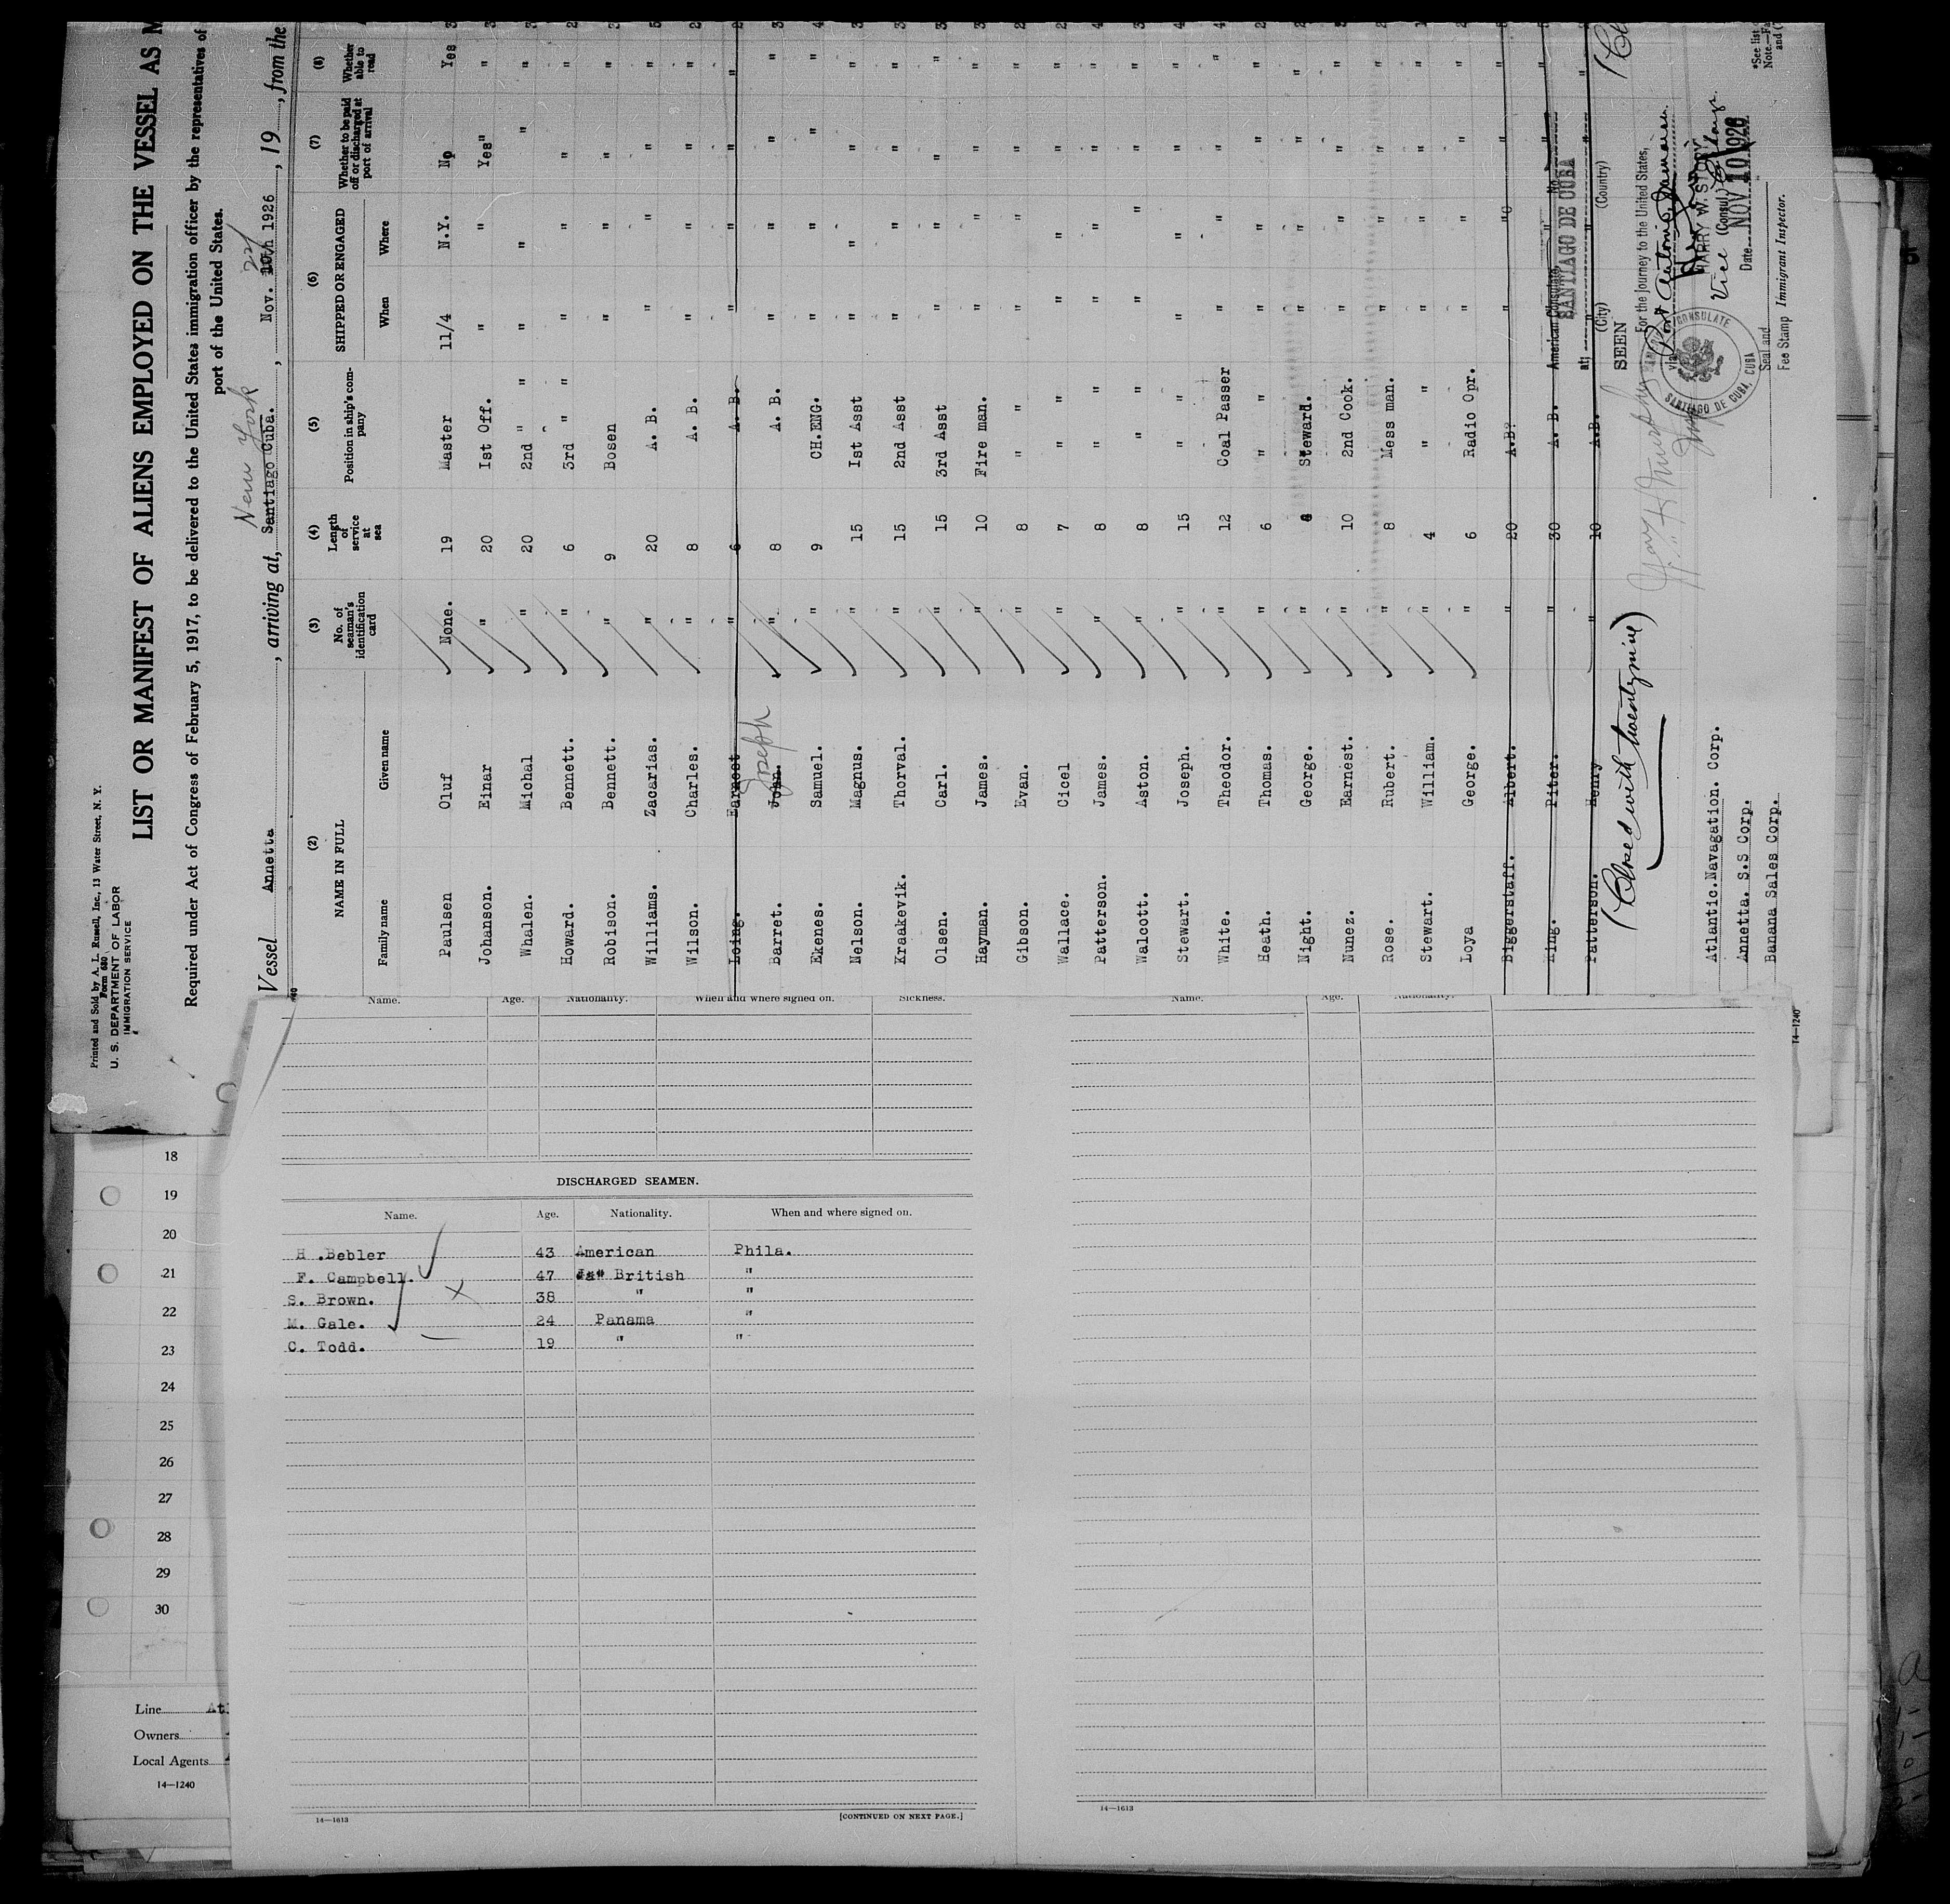 Printed and Sold by A. L. Russell, Inc., 13 Water Street, N. Y.
Form 680
U. S. DEPARTMENT OF LABOR
IMMIGRATION SERVICE
LIST OR MANIFEST OF ALIENS EMPLOYED ON THE VESSEL AS M
Required under Act of Congress of February 5, 1917, to be delivered to the United States immigration officer by the representatives of
port of the United States.
New York 22
Vessel Annetta , arriving at, Santiago Cuba. , Nov. 10th 1926 , 19 , from the
(2) (3) (4) (5) (6) (7) (8)
NAME IN FULL No. of seaman's identification card Length of service at sea Position in ship's company SHIPPED OR ENGAGED Whether to be paid off or discharged at port of arrival Whether able to read
Family name Given name When Where
Paulsen Oluf None. 19 Master 11/4 N.Y. No Yes 3
Johanson. Einar " 20 Ist Off. " " Yes" " 3
Whalen. Michal " 20 2nd " " " " " " 3
Howard. Bennett. " 6 3rd " " " " " " 2
Robison. Bennett. " 9 Bosen " " " " 3
Williams. Zacarias. " 20 A. B. " " " " 5
Wilson. Charles. " 8 A. B. " " " " 2
Loing. Earnest " 6 A. B. " " " " 2
Barret. John. Joseph " 8 A. B. " " " " 3
Ekenes. Samuel. " 9 CH.ENG. " " " " 4
Nelson. Magnus. " 15 Ist Asst " " " " 3
Kraakevik. Thorval. " 15 2nd Asst " " " " 3
Olsen. Carl. " 15 3rd Asst " " " " 3
Hayman. James. " 10 Fire man. " " " " 3
Gibson. Evan. " 8 " " " " " " 2
Wallace. Cicel " 7 " " " " " " 2
Patterson. James. " 8 " " " " " " 4
Walcott. Aston. " 8 " " " " " " 3
Stewart. Joseph. " 15 " " " " " " 4
White. Theodor. " 12 Coal Passer " " " " 4
Heath. Thomas. " 6 " " " " " " 2
Night. George. " Steward. " " " " 2
Nunez. Earnest. " 10 2nd Cook. " " " " 3
Rose. Rubert. " 8 Mess man. " " " " 2
Stewart. William. " 4 " " " " " " 1
Loya George. " 6 Radio Opr. " " " " 2
Biggerstaff. Albert. " 20 A.B? " " " "
King. Piter. " 30 A. B. " "
Patterson. Henry " 10 A.B. " " " "
(Closed with twentynine)
American Consulate No.
SANTIAGO DE CUBA
at;
(City) (Country)
SEEN
For the Journey to the United States,
via Port Antonio, Jamaica.
HARRY W. STORY
Vice (Consul)
Date NOV 10 1926
AMERICAN CONSULATE
SANTIAGO DE CUBA, CUBA
Seal and
Fee Stamp Immigrant Inspector.
*See list
Note.—Fa
and (
Atlantic.Navagation. Corp.
Annetta. S.S Corp.
Banana Sales Corp.
14—1240
Name. Age. Nationality. When and where signed on. Sickness.
Name. Age. Nationality.
DISCHARGED SEAMEN.
Name. Age. Nationality. When and where signed on.
H .Bebler 43 American Phila.
F. Campbell. 47 British "
S. Brown. 38 " "
M. Gale. 24 Panama "
C. Todd. 19 " "
14—1613 [CONTINUED ON NEXT PAGE.]
14—1613
18
19
20
21
22
23
24
25
26
27
28
29
30
Line At
Owners
Local Agents
14—1240